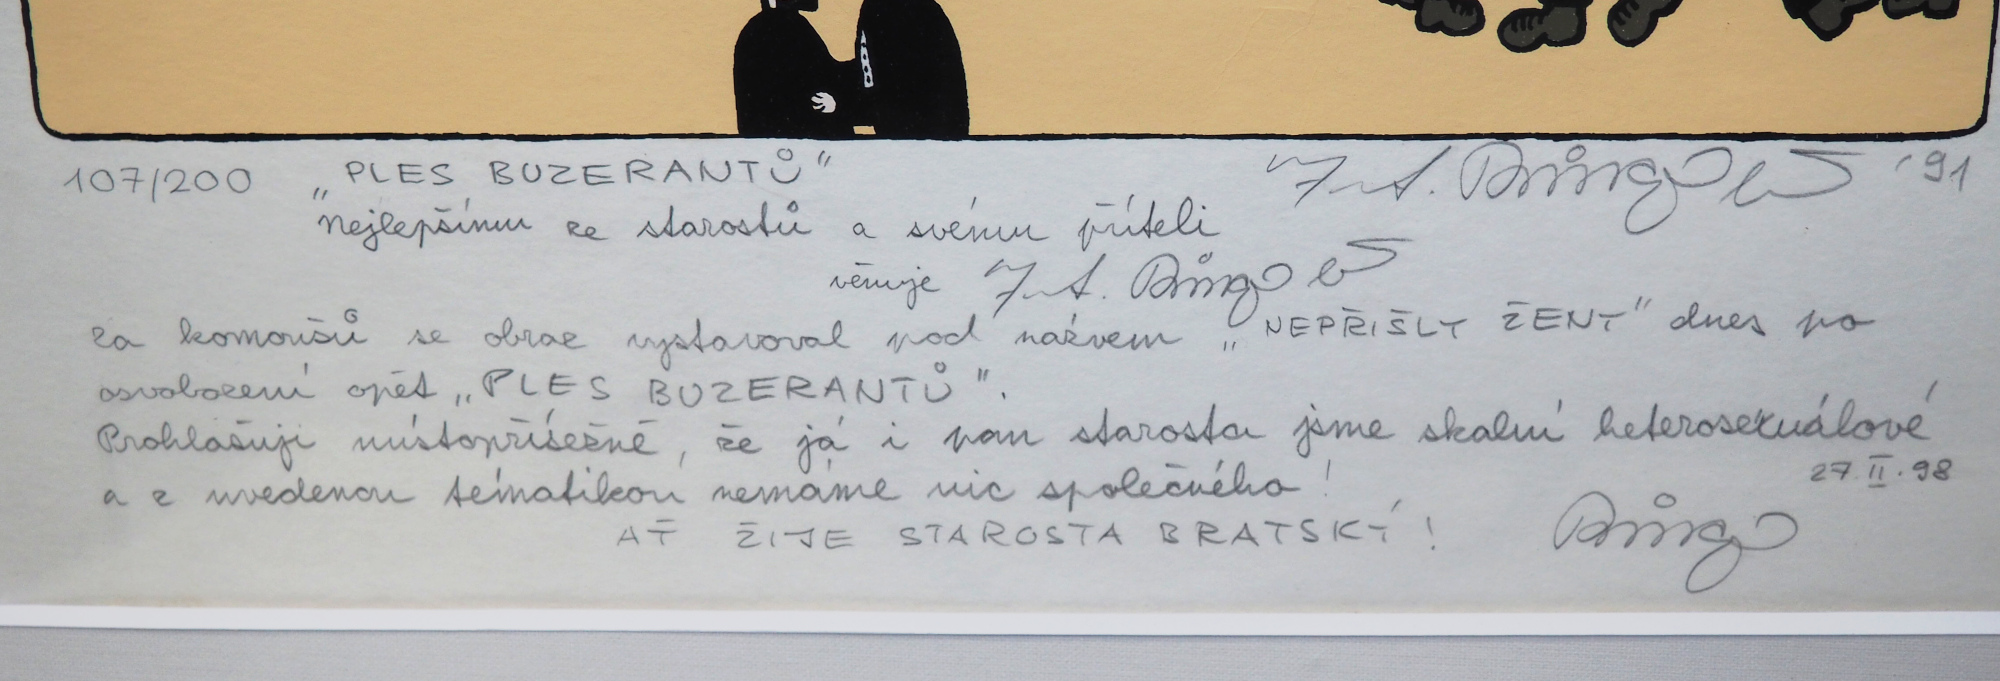 107/200 „PLES BUZERANTŮ" '91
nejlepšímu ze starostů a svému příteli
věnuje
za komoušů se obraz vystavoval pod názvem „NEPŘIŠLY ŽENY" dnes po
osvobození opět „PLES BUZERANTŮ".
Prohlašuji místopřísežně, že já i pan starosta jsme skalní heterosexuálové
a z uvedenou tématikou nemáme nic společného! 27.II.98
AŤ ŽIJE STAROSTA BRATSKÝ!